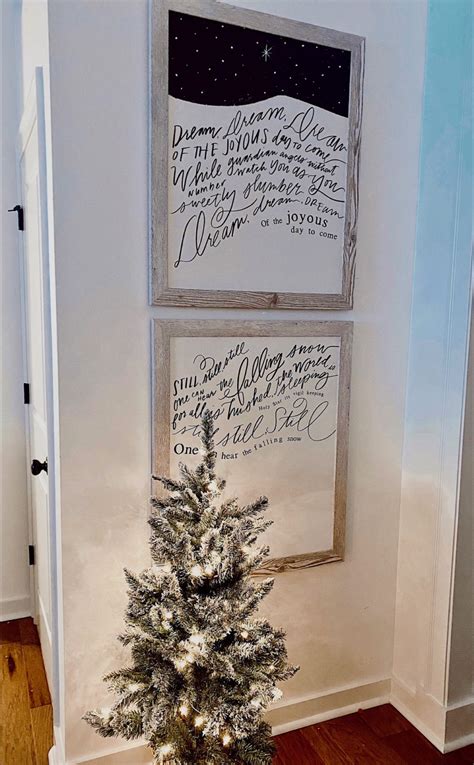 Dream, Dream, Dream
OF THE JOYOUS day to come
While guardian angels without
number watch you as you
sweetly slumber DREAM
Dream, dream,
Of the joyous
day to come
STILL, still, still
one can hear the falling snow
for all is hushed, the world is sleeping
Holy Star its vigil keeping
still still, Still
One hear the falling snow